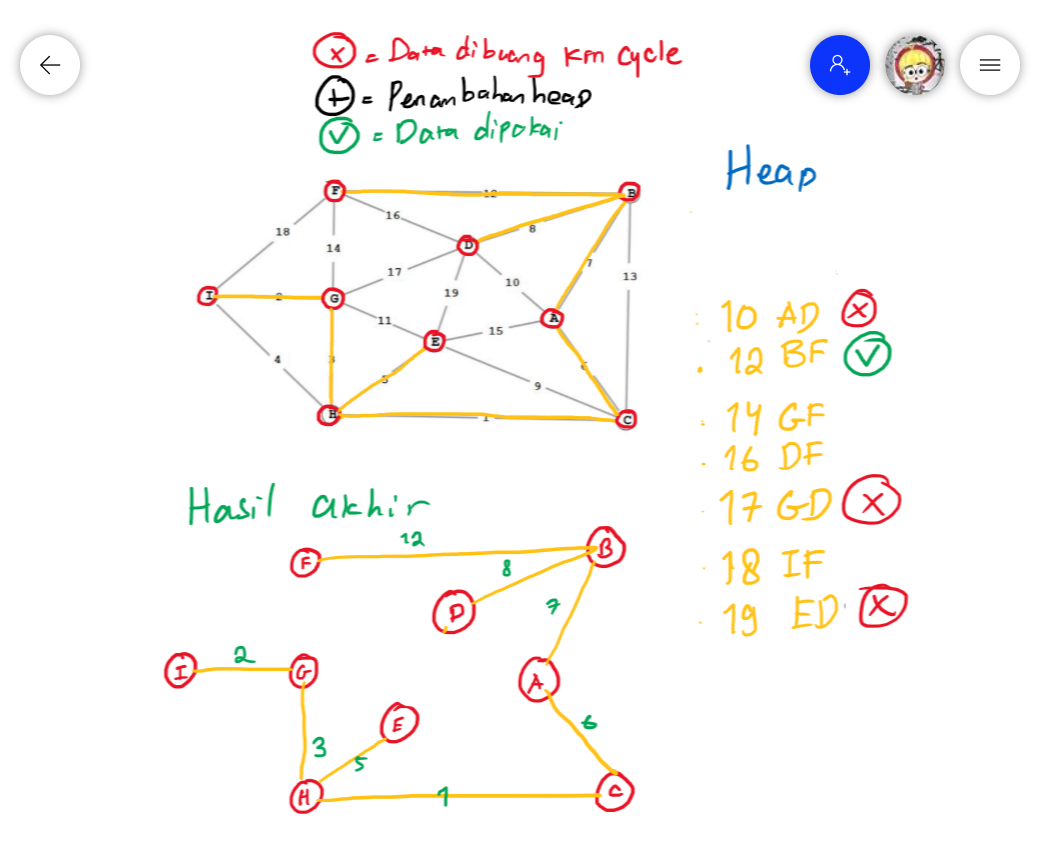 (x) = Data dibuang krn cycle
(+) = Penambahan heap
(v) = Data dipakai
Heap
F 12 B
18 16 8
14 D 7
17 10 13
I 2 G 19
11 A
E 15
4 3 6
5 9
H 1 C
10 AD x
12 BF v
14 GF
16 DF
17 GD x
18 IF
19 ED x
Hasil akhir
F 12 B
8
D 7
I 2 G A
E 6
3 5
H 1 C